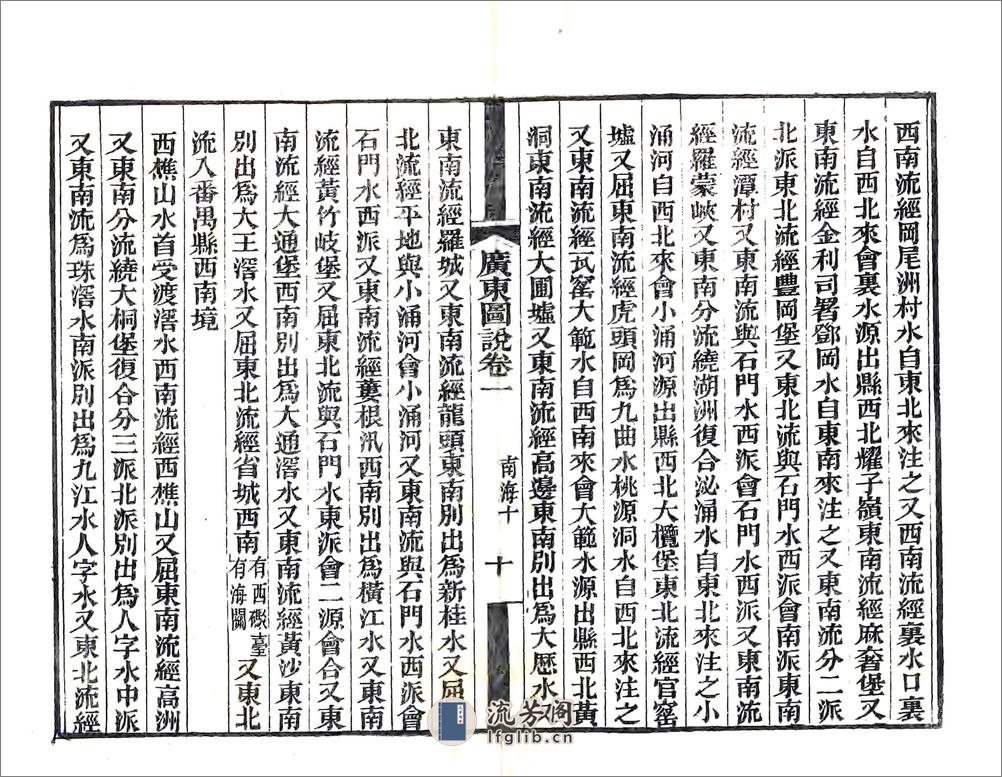 西南流經岡尾洲村水自東北來注之又西南流經裏水口裏
水自西北來會裏水源出縣西北耀子嶺東南流經麻奢堡又
東南流經金利司署鄧岡水自東南來注之又東南流分二派
北派東北流經豐岡堡又東北流與石門水西派會南派東南
流經潭村又東南流與石門水西派會石門水西派又東南流
經羅蒙峽又東南分流繞湖洲復合泌涌水自東北來注之小
涌河自西北來會小涌河源出縣西北大欖堡東北流經官窰
墟又屈東南流經虎頭岡爲九曲水桃源洞水自西北來注之
又東南流經瓦窰大範水自西南來會大範水源出縣西北黃
洞東南流經大圃墟又東南流經高邊東南別出爲大厯水又
廣東圖說卷一
南海十
十
東南流經羅城又東南流經龍頭東南別出爲新桂水又屈
北流經平地與小涌河會小涌河又東南流與石門水西派會
石門水西派又東南流經蘷根汛西南別出爲橫江水又東南
流經黃竹岐堡又屈東北流與石門水東派會二源會合又東
南流經大通堡西南別出爲大通滘水又東南流經黃沙東南
別出爲大王滘水又屈東北流經省城西南有西礮臺有海關又東北
流入番禺縣西南境
西樵山水首受渡滘水西南流經西樵山又屈東南流經高洲
又東南分流繞大桐堡復合分三派北派別出爲人字水中派
又東南流爲珠滘水南派別出爲九江水人字水又東北流經
流芳阁
lfglib.cn